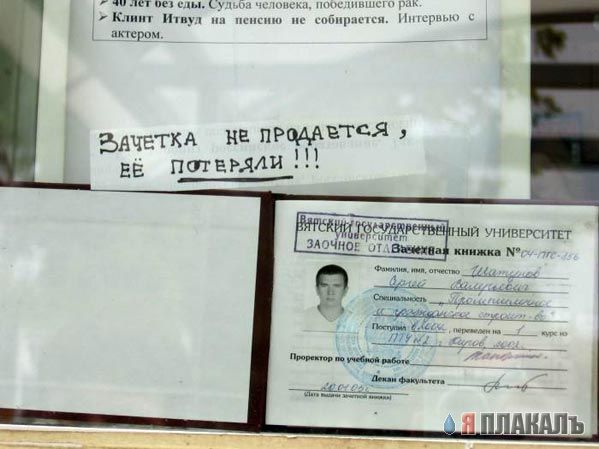 ➢ 40 лет без еды. Судьба человека, победившего рак.
➢ Клинт Итвуд на пенсию не собирается. Интервью с
актером.
ЗАЧЕТКА НЕ ПРОДАЕТСЯ,
ЕЁ ПОТЕРЯЛИ!!!
ВЯТСКИЙ ГОСУДАРСТВЕННЫЙ УНИВЕРСИТЕТ
Вятский государственный
университет
ЗАОЧНОЕ ОТДЕЛЕНИЕ
Зачетная книжка №04-ПГС-356
Фамилия, имя, отчество Шатунов
Сергей
Специальность „Промышленное
и гражданское строит-во"
Поступил в 2004, переведен на 1 курс из
Киров
Проректор по учебной работе
Декан факультета
(Дата выдачи зачетной книжки)
Я ПЛАКАЛЪ